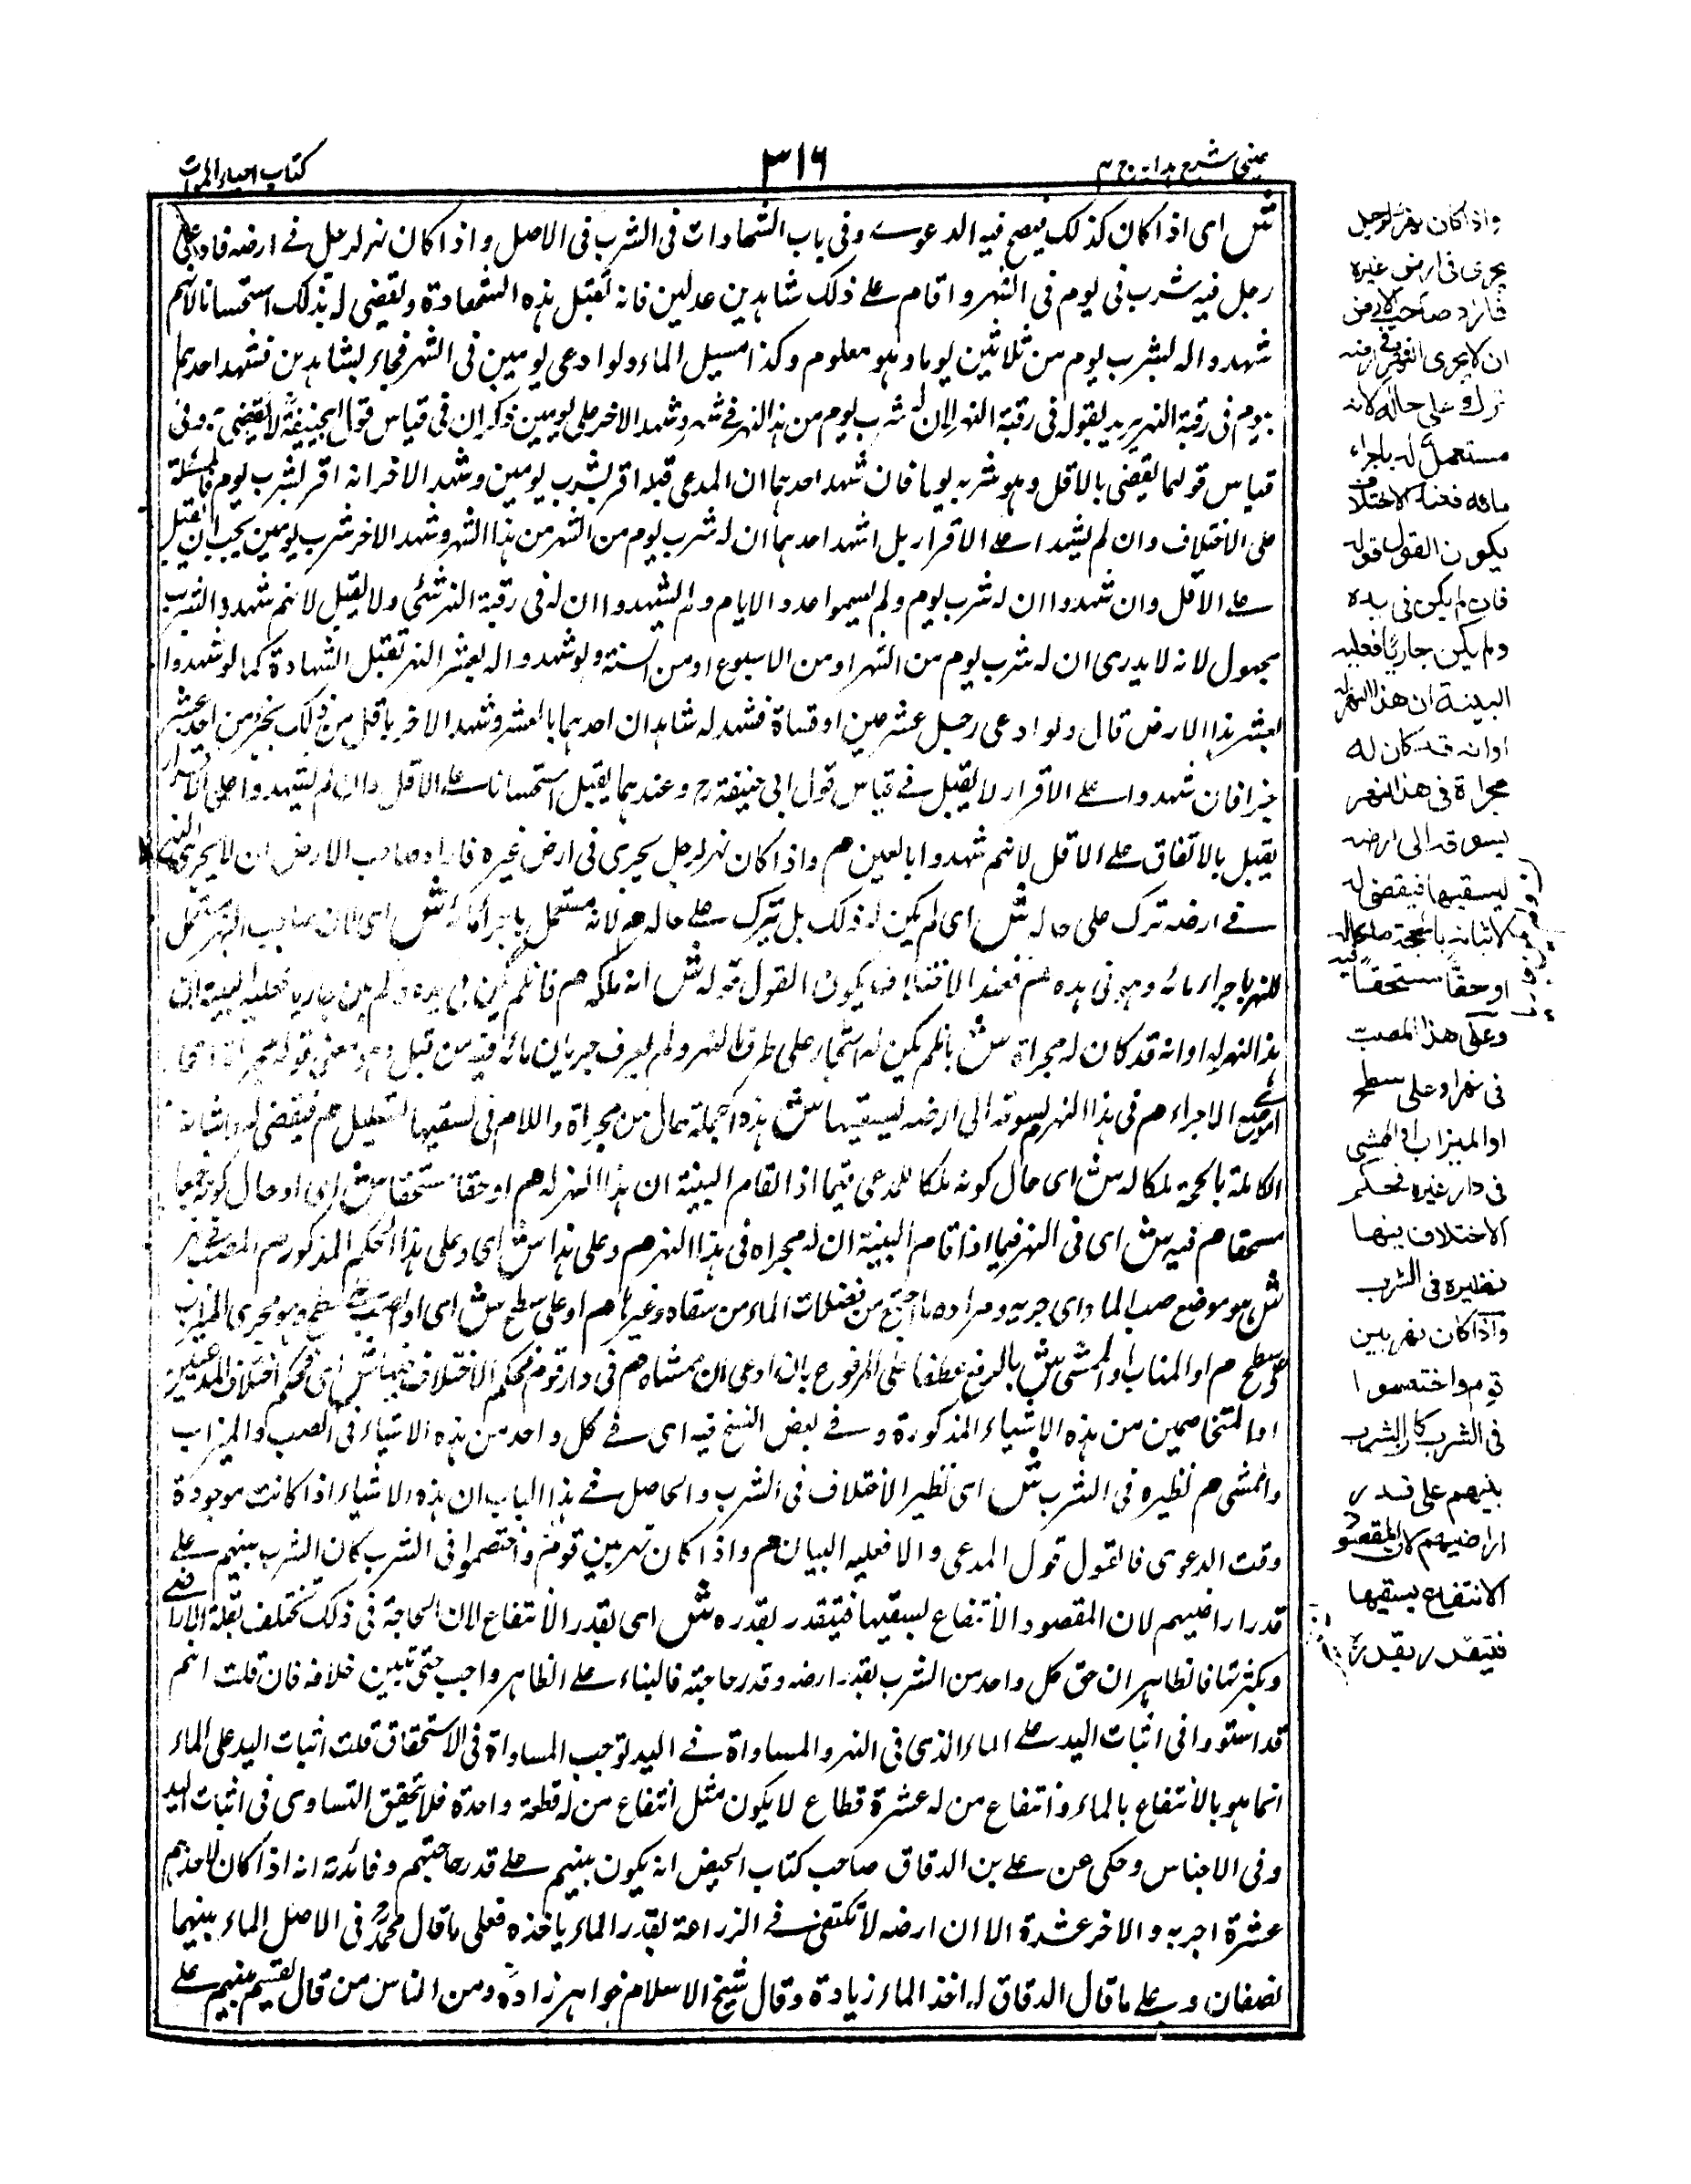 عینی شرح ہدایہ ج ۴
۳۱۶
کتاب احیاء الموات
ش ای اذا کان کذلک فیصح فیہ الدعوے وفی باب الشہادات فی الشرب فی الاصل واذا کان نہر لرجل فے ارضہ فادعی
رجل فیہ شرب فی یوم فی الشہر واقام علے ذلک شاہدین عدلین فانہ تقبل ہذہ الشہادة ویقضی لہ بذلک استحسانا لانہم
شہدوا لہ بشرب یوم من ثلاثین یوما وہو معلوم وکذا مسیل الماء ولو ادعی یومین فی الشہر فجاء بشاہدین فشہد احدہما
بیوم فی رقبة النہر یرید بقولہ فی رقبة النہر ان لہ شرب یوم من ہذا النہر فے شہر وشہد الاخر علی یومین ذکر ان فی قیاس قول ابیحنیفة لا یقضی وفی
قیاس قولہما یقضی بالاقل وہو شربہ یوما فان شہد احدہما ان المدعی قبلہ اقر بشرب یومین وشہد الاخر انہ اقر بشرب یوم فالمسئلة
علی الاختلاف وان لم یشہدا علے الاقرار بل اشہد احدہما ان لہ شرب یوم من الشہر من ہذا النہر وشہد الاخر شرب یومین یجب ان یقبل
علے الاقل وان شہدوا ان لہ شرب یوم ولم یسموا عدد الایام ولم یشہدوا ان لہ فی رقبة النہر شئی ولا یقبل لانہم شہدوا بشرب
مجہول لانہ لا یدری ان لہ شرب یوم من الشہر او من الاسبوع او من السنة ولو شہدوا لہ بعشر النہر تقبل الشہادة کما لو شہدوا
بعشر ہذا الارض قال ولو ادعی رجل عشر عین او قناة فشہد لہ شاہدان احدہما بالعشر وشہد الاخر باقل من ذلک بجزء من احد عشر
جزا فان شہدوا علے الاقرار لا یقبل فے قیاس قول ابی حنیفة رح وعندہما یقبل استحسانا علے الاقل وان لم یشہدوا علی الاقرار
یقبل بالاتفاق علے الاقل لانہم شہدوا بالعین م واذا کان نہر لرجل یجری فی ارض غیرہ فاراد صاحب الارض ان لا یجری النہر
فے ارضہ ترک علی حالہ ش ای لم یکن لہ ذلک بل یترک علے حالہ م لانہ مستعمل باجراء مائہ ش ای لان صاحب النہر مستعمل
للنہر باجراء مائہ وہو فی یدہ م فعند الاختلاف یکون القول قولہ ش انہ ملکہ م فان لم یکن فی یدہ ولم یکن جاریا فعلیہ البینة ان
ہذا النہر لہ او انہ قد کان لہ مجراة ش بان لم یکن لہ اشجار علی طرف النہر ولم یعرف جریان مائہ فیہ من قبل وہو معنی قولہ مجراة ای
موضع الاجراء م فی ہذا النہر یسوقہ الی ارضہ لیسقیہا ش ہذہ الجملة حال من مجراة واللام فی لیسقیہا للتعلیل م فیقضی لہ لاثباتہ
الکاملة بالحجة ملکا لہ ش ای حال کونہ ملکا للمدعی فیما اذا اقام البینة ان ہذا النہر لہ م او حقا مستحقا ش ای او حال کونہ حقا
مستحقا م فیہ ش ای فی النہر فیما اذا قام البینة ان لہ مجراہ فی ہذا النہر م وعلی ہذا ش ای وعلی ہذا الحکم المذکور م المصب فے نہر
ش ہو موضع صب الماء ای جریہ ومرادہ ما اجتمع من فضلات الماء من سقاہ وغیرہا م او علی سطح ش ای او المصب علے سطح وہو مجری المیزاب
علی سطح م او المیزاب او الممشی ش بالرفع عطفا علی المرفوع بان ادعی ان ممشاہ م فی دار قوم فحکم الاختلاف فیہا ش ای فحکم اختلاف المدعیین
او المتخاصمین من ہذہ الاشیاء المذکورة وفے بعض النسخ فیہ ای فے کل واحد من ہذہ الاشیاء فی المصب والمیزاب
والممشی م نظیرہ فی الشرب ش ای نظیر الاختلاف فی الشرب والحاصل فے ہذا الباب ان ہذہ الاشیاء اذا کانت موجودة
وقت الدعوی فالقول قول المدعی والا فعلیہ البیان م واذا کان نہر بین قوم واختصموا فی الشرب کان الشرب بینہم علے
قدر اراضیہم لان المقصود الانتفاع بسقیہا فیتقدر بقدرہ ش ای بقدر الانتفاع لان الحاجة فی ذلک تختلف بقلة الاراضے
وبکثرتہا فالظاہر ان حق کل واحد من الشرب بقدر ارضہ وقدر حاجتہ فالبناء علے الظاہر واجب حتی تبین خلافہ فان قلت انہم
قد استووا فی اثبات الید علے الماء الذی فی النہر والمساواة فے الید توجب المساواة فی الاستحقاق قلت اثبات الید علی الماء
انما ہو بالانتفاع بالماء وانتفاع من لہ عشرة قطاع لا یکون مثل انتفاع من لہ قطعة واحدة فلا تحقق التساوی فی اثبات الید
وفی الاجناس وحکی عن علے بن الدقاق صاحب کتاب الحیض انہ یکون بینہم علے قدر حاجتہم وفائدتہ انہ اذا کان لاحدہم
عشرة اجربہ والاخر عشرة الا ان ارضہ لا تکتفی فے الزراعة بقدر الماء یاخذہ فعلی ما قال محمد رح فی الاصل الماء بینہما
نصفان وعلے ما قال الدقاق لہ اخذ الماء زیادة وقال شیخ الاسلام خواہر زادہ ومن الناس من قال یقسم بینہم علے
واذا کان نھر لرجل
یجری فی ارض غیرہ
فاراد صاحب الارض
ان لا یجری النھر فی ارضہ
ترک علی حالہ لانہ
مستعمل لہ باجراء
مائہ فعند الاختلاف
یکون القول قولہ
فان لم یکن فی یدہ
ولم یکن جاریا فعلیہ
البینة ان ھذا النھر لہ
او انہ قد کان لہ
مجراة فی ھذا النھر
یسوقہ الی ارضہ
لیسقیھا فیقضی لہ
لاثباتہ بالحجة ملکا لہ
او حقا مستحقا فیہ
وعلی ھذا المصب
فی نھر او علی سطح
او المیزاب او الممشی
فی دار غیرہ فحکم
الاختلاف فیھا
نظیرہ فی الشرب
واذا کان نھر بین
قوم واختصموا
فی الشرب کان الشرب
بینھم علی قدر
اراضیھم لان المقصود
الانتفاع بسقیھا
فیتقدر بقدرہ